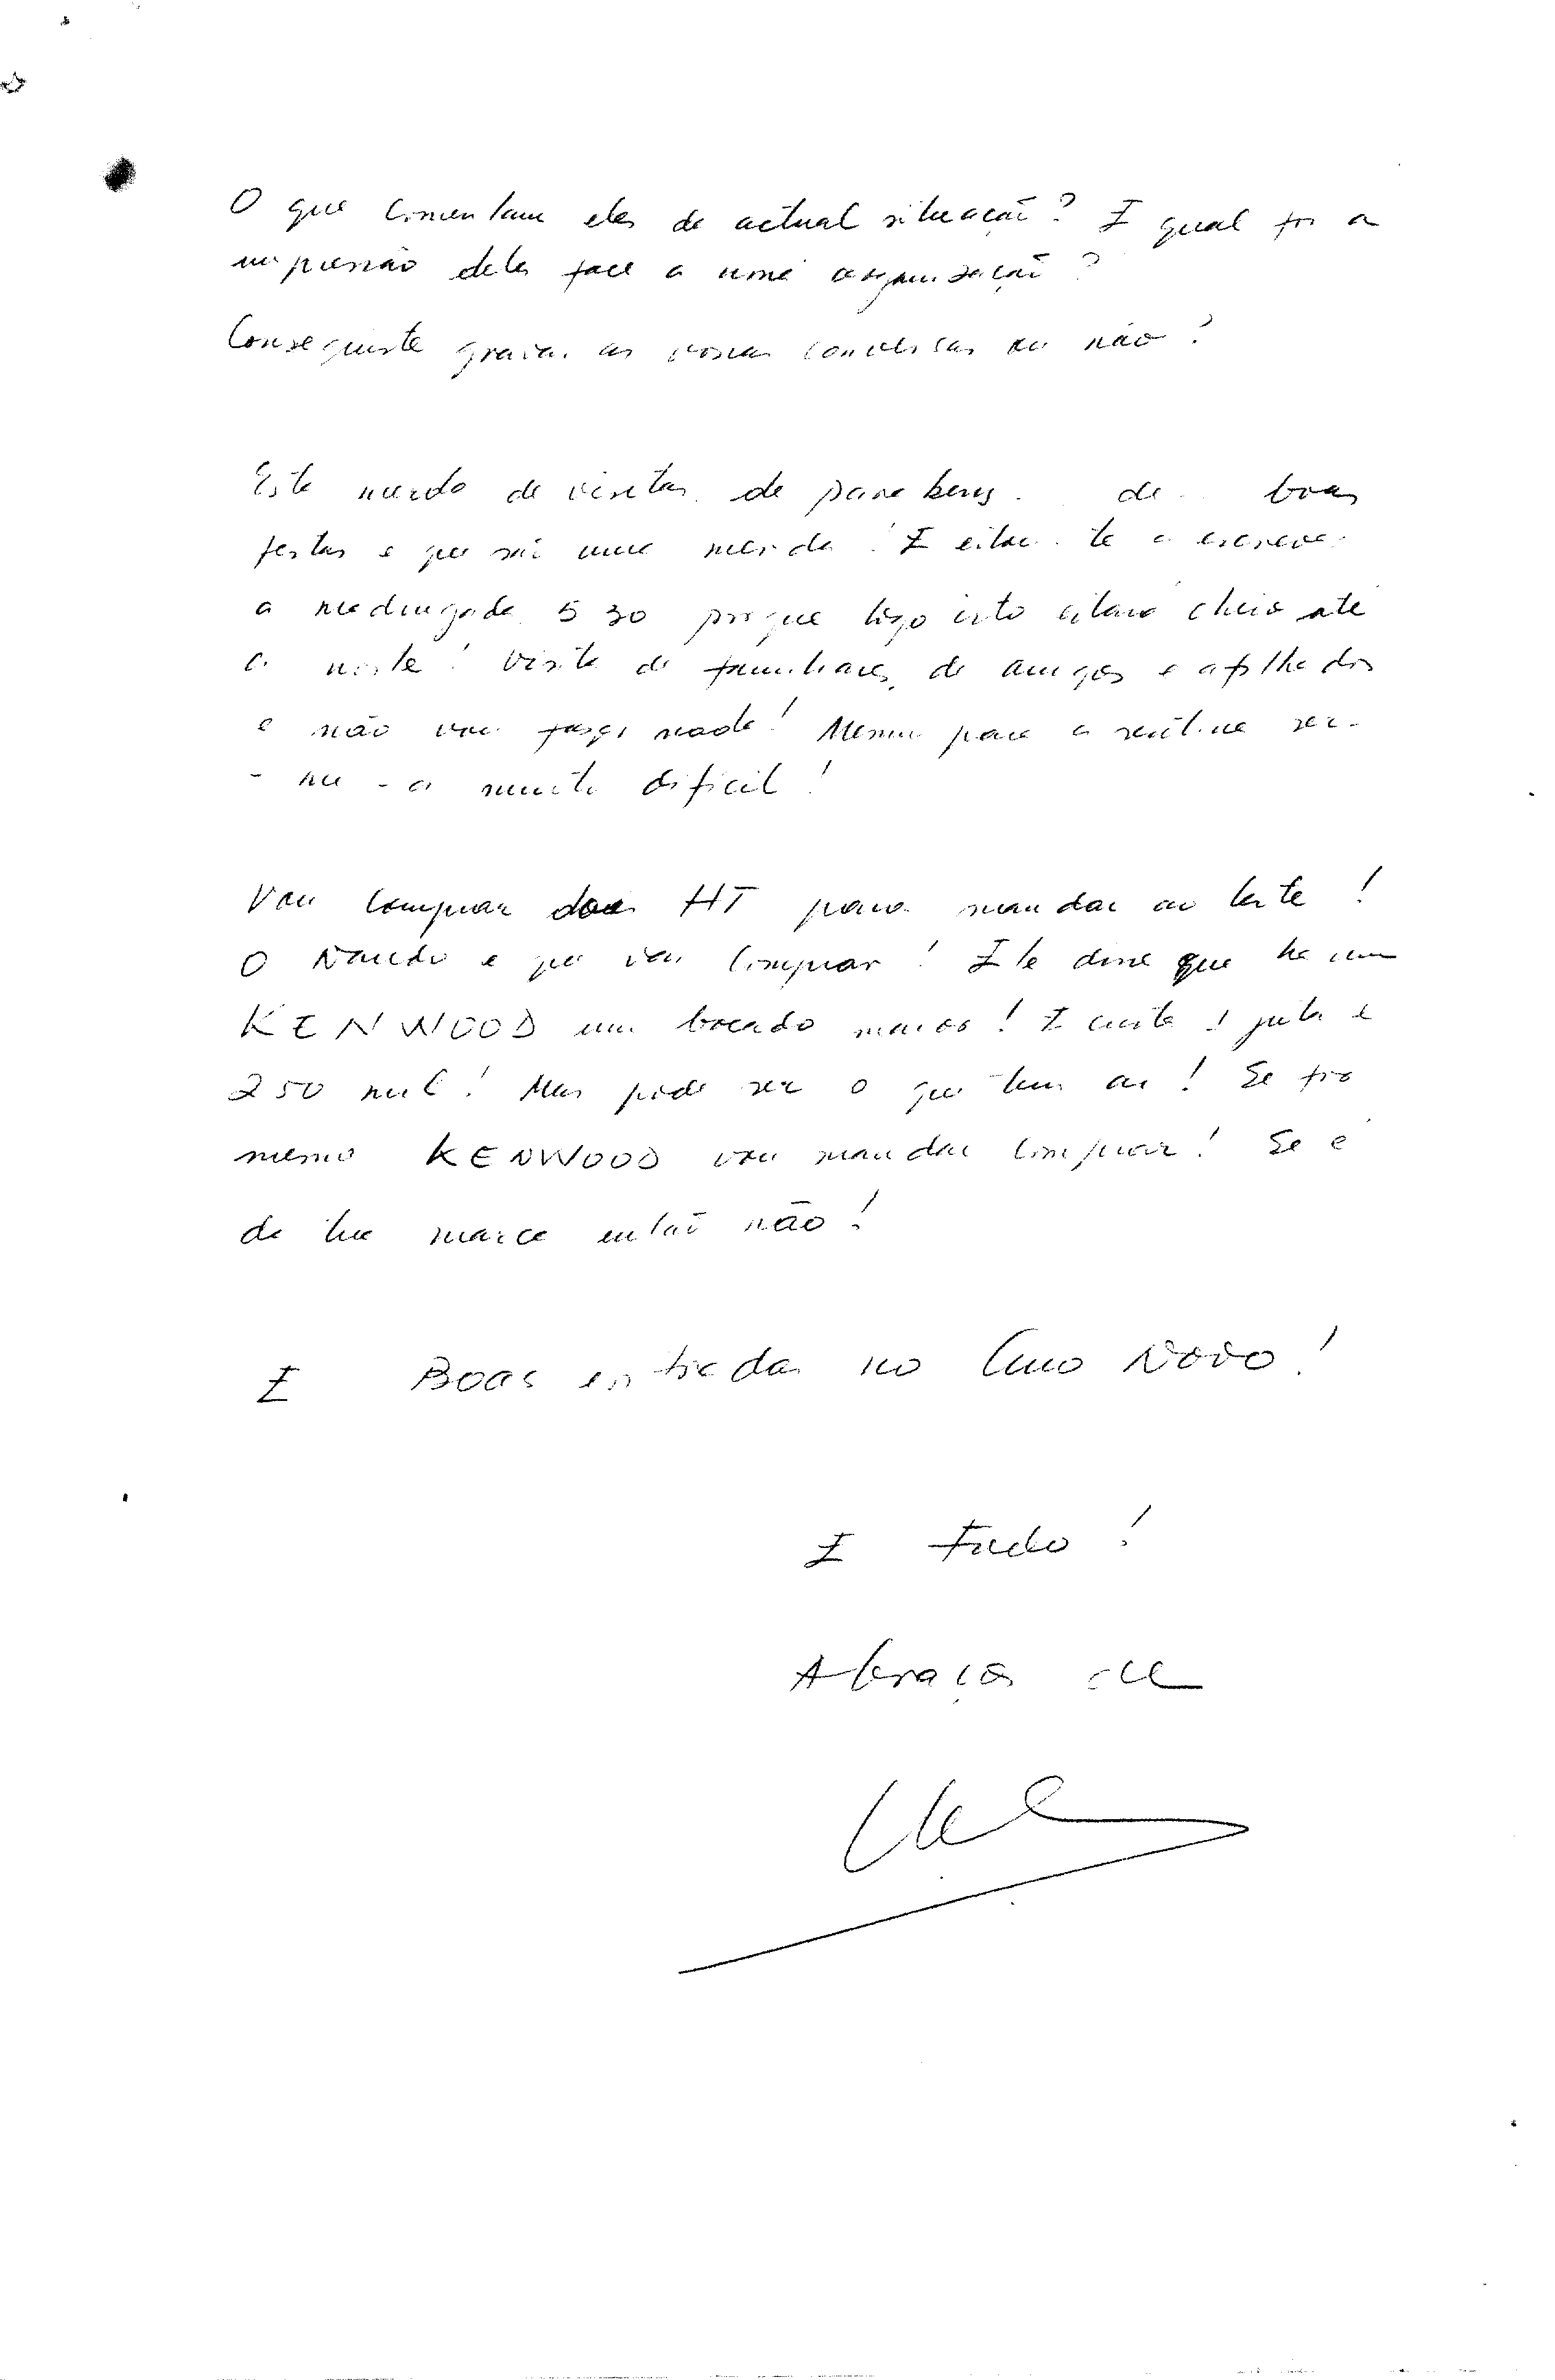 O que comentam eles da actual situação? E qual foi a
impressão deles face a uma organização?
Conseguiste gravar as vossas conversas ou não?
Este mundo de visitas, de parabens, de boas
festas e que sai uma merda! E estou-te a escrever
a madrugada 5 30 porque logo isto estará cheio até
a noite! Visita de familiares, de amigos e afilhados
e não vou fazer nada! Mesmo para a
muito dificil!
Vou comprar dois HT para mandar ao leste!
O Nando e que vai comprar! Ele disse que ha um
KENWOOD um bocado maior! E custa 1 juta e
250 mil! Mas pode ser o que tens ai! Se for
mesmo KENWOOD vou mandar comprar! Se é
da tua marca então não!
E Boas entradas no Ano Novo!
E tudo!
Abraços do